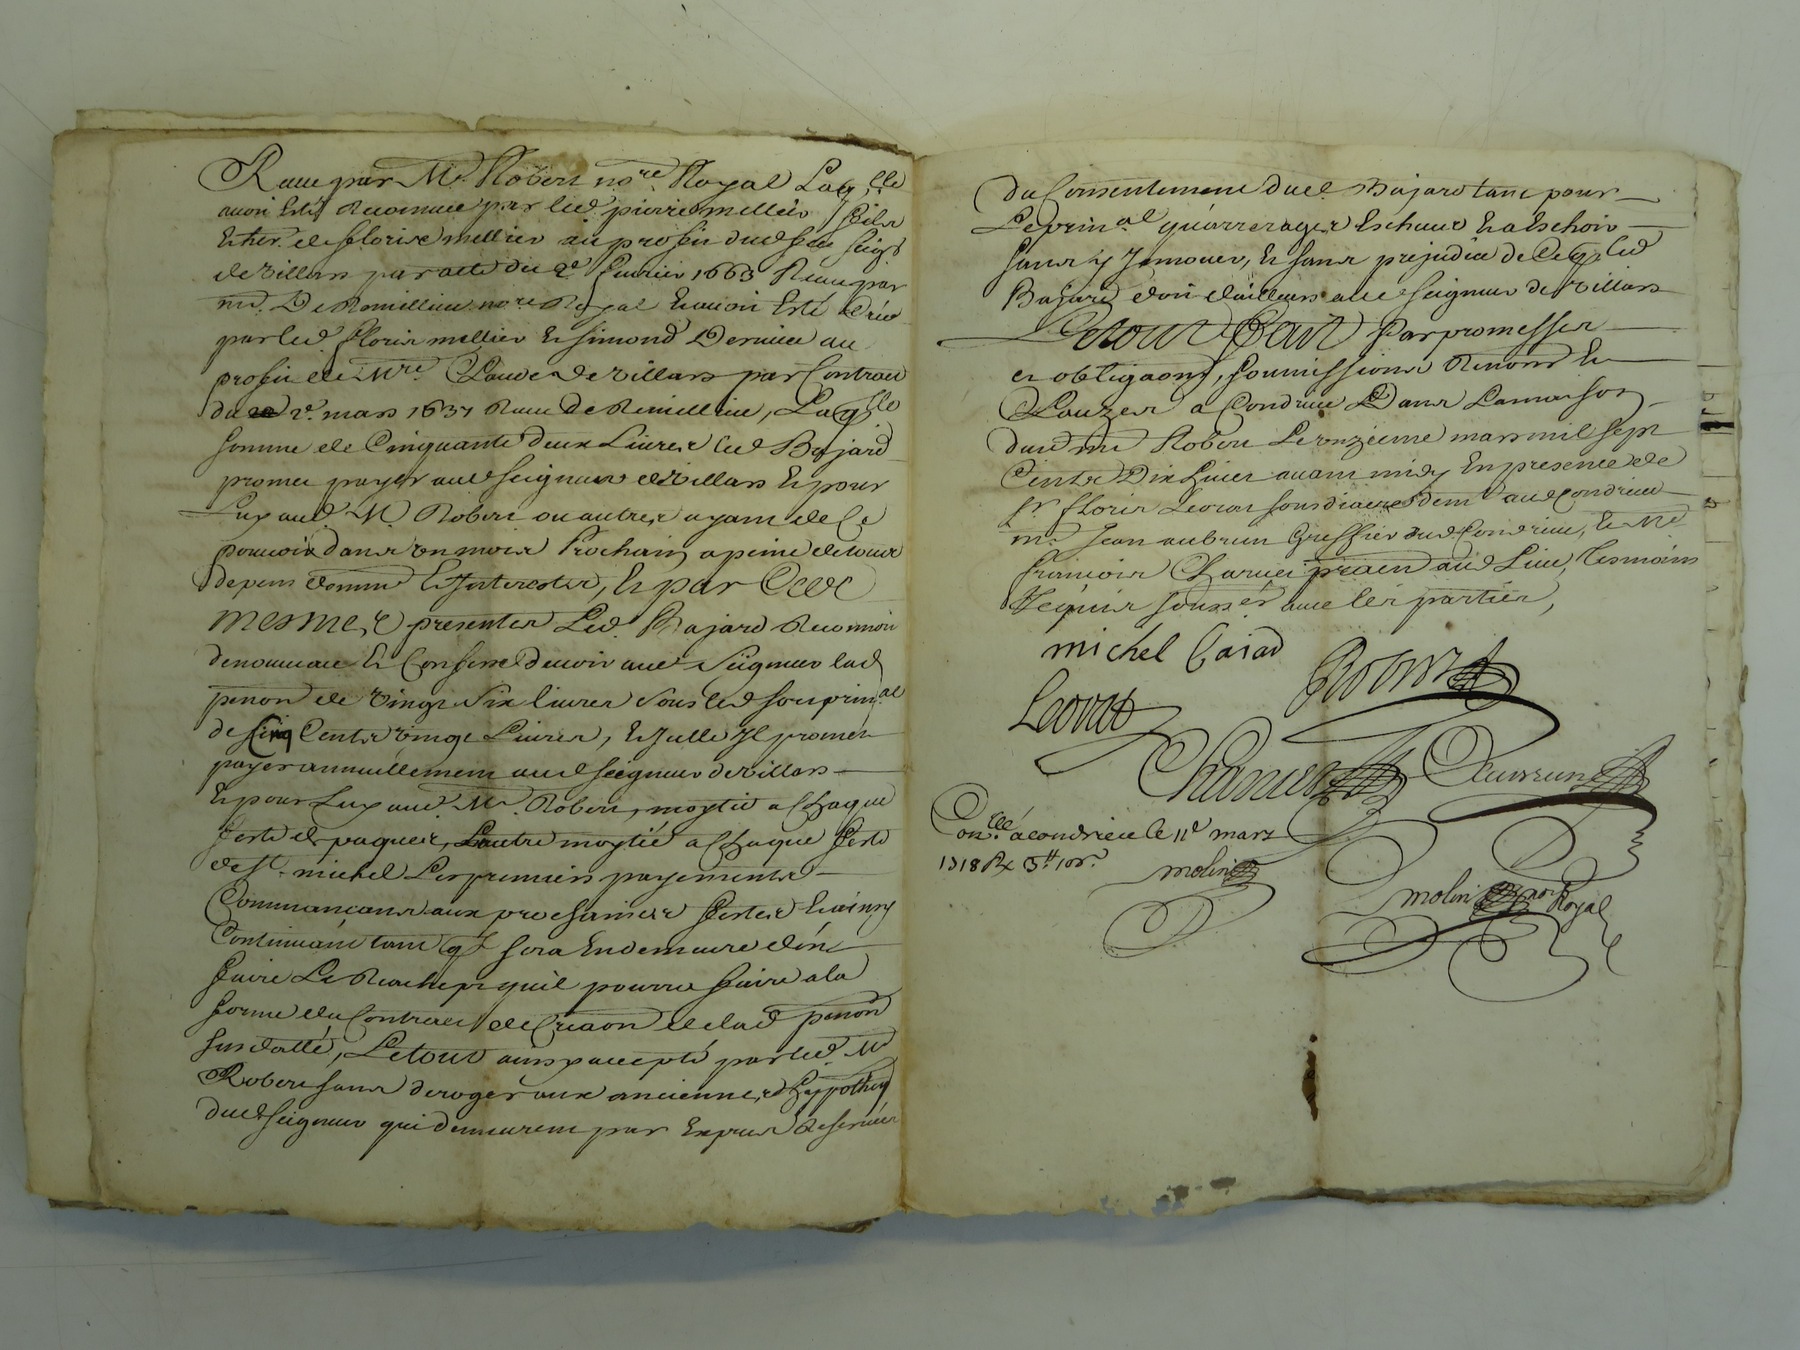 Receu par Me. Robert nore. Royal Laqelle
avoit Esté Reconnue par led. pierre mellier fils
Et her. de floris mellier au profit dud. feu seigr
de villars par acte du 2e fevrier 1663 Receu par
me. De Remillieu nore Royal Et avoit Esté Créée
par led. floris mellier Et simond Dernieu au
profit de Mre. Claude de villars par Contract
du 2e. mars 1637 Receu De Remillieu, Laqlle
somme de Cinquante deux Livres led Bajard
promet payer aud seigneur de villars Et pour
Luy aud. Me Robert ou autres ayant de Ce
pouvoir dans un mois Prochain, a peine de tous
depens domm Et Interests, Et par Ces
mesmes presentes Led. Bajard Reconnoit
de nouveau Et Confesse devoir aud Seigneur lad
pention de vingt Six livres Sous led sort prinal
de Cinq Cents vingt Livres, Et Jcelle Jl promet
payer annuellement aud seigneur de villars
Et pour Luy aud. Me. Robert, moytié a Chaque
feste de paques, Lautre moytié a Chaque feste
de st. michel Les premiers payements
Commançans aux prochaines festes Et ainsy
Continuant tant ql sera En demeure d'en
faire Le Rachept quil pourra faire a la
forme du Contract de Creaon de lad pention
susdatté, Le tout ainsy accepté par led. Me
Robert sans deroger aux anciennes hypotheq
dud seigneur qui demeurent par Exprès Reservées
du Consentement dud. Bajard tant pour
Le prinal qu'arrerages Escheus Et a Eschoir
sans y Jnnover, Et sans prejudice de Ce q led
Bajard doit d'ailleurs aud seigneur de villars
Le tout fait Par promesses
et obligaons, soumissions Renons Et
Clauzes a Condrieu Dans La maison
dud me Robert Le onzieme mars mil sept
Cents Dix huict avant midy En presence de
sr floris Levrat sousdiacre demt aud Condrieu
me. Jean aubrun Greffier dud Condrieu, Et Me
francois Charvet praticn aud Lieu, tesmoins
Requis soussés avec les parties,
michel Baiad
Robert
Levrat
Charvet
Auvrun
Conllé a condrieu le 11e mars
1718 Rx 3tt 10s.
molin
molin nore Royal